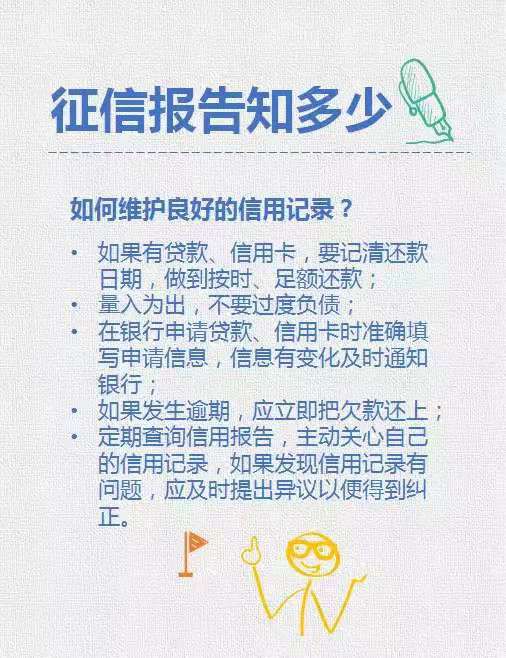 征信报告知多少
如何维护良好的信用记录？
• 如果有贷款、信用卡，要记清还款
日期，做到按时、足额还款；
• 量入为出，不要过度负债；
• 在银行申请贷款、信用卡时准确填
写申请信息，信息有变化及时通知
银行；
• 如果发生逾期，应立即把欠款还上；
• 定期查询信用报告，主动关心自己
的信用记录，如果发现信用记录有
问题，应及时提出异议以便得到纠
正。